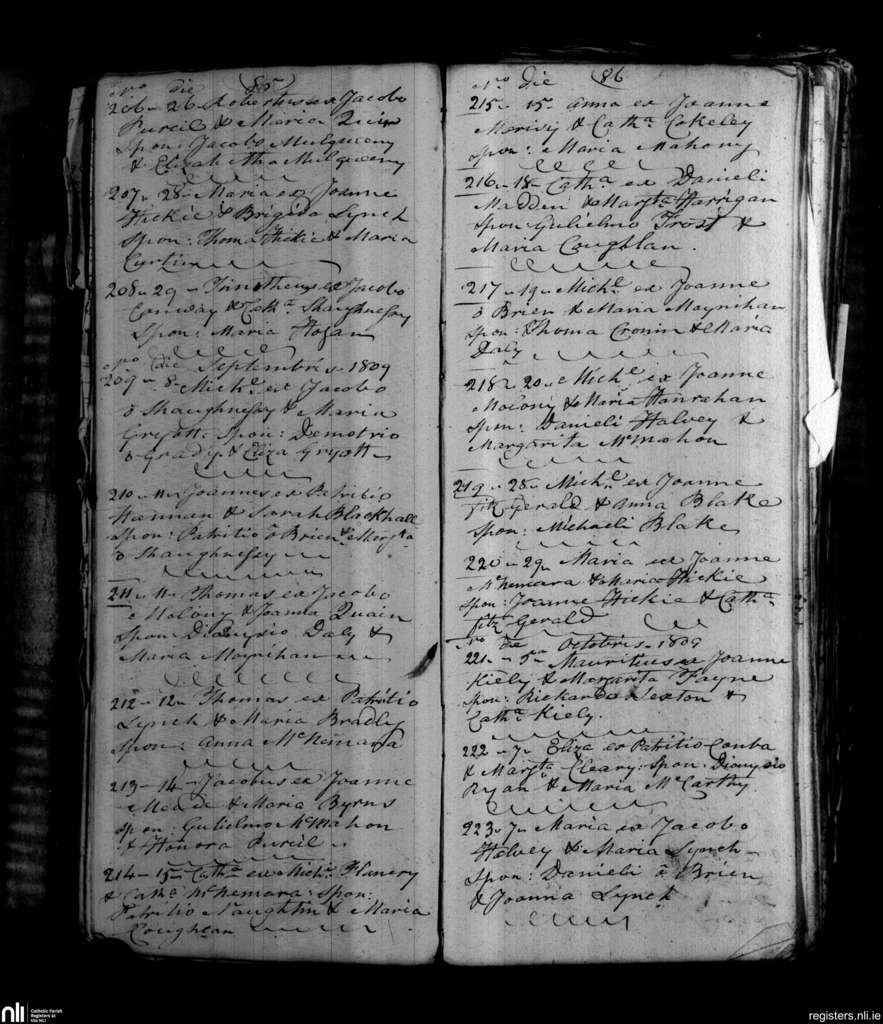 No die 85
206 - 26 - Robertus ex Jacobo
Purcil & Maria Quin
Spon: Jacobo Mulqueeny
& Elizabetha Mulqueeny
207 - 28 - Maria ex Joanne
Hickie & Brigida Lynch
Spon: Thoma Hickie & Maria
Curtin
208 - 29 - Timotheus ex Jacobo
Conway & Cathª Shaughnessy
Spon: Maria Hogan
No die Septembris - 1809
209 - 8 - Michl ex Jacobo
o Shaughnessy & Maria
Spon: Demetrio
o Grady & Eliza
210 - 11 - Joannes ex Patritio
Heennan & Sarah Blackhall
Spon: Patritio o Brien & Margta
o Shaughnessy
211 - 11 - Thomas ex Jacobo
Molony & Joanna Quain
Spon: Dionysio Daly &
Maria Moynihan
212 - 12 - Thomas ex Patritio
Lynch & Maria Bradly
Spon: Anna McNemara
213 - 14 - Jacobus ex Joanne
Meade & Maria Byrns
Spon: Gulielmo McMahon
& Honora Purcil
214 - 15 - Cathª ex Michl Flanery
& Cathª McNemara: Spon:
Patritio Naughtin & Maria
Coughlan
No die 86
215 - 15 - Anna ex Joanne
& Cathª Cokeley
Spon: Maria Mahony
216 - 18 - Cathª ex Danieli
Madden & Margta Harrigan
Spon: Gulielmo Frost &
Maria Coughlan.
217 - 19 - Michl ex Joanne
o Brien & Maria Moynihan
Spon: Thoma Cronin & Maria
Daly
218 - 20 - Michl ex Joanne
Molony & Maria Hanrahan
Spon: Danieli Halvey &
Margarita McMahon
219 - 28 - Michl ex Joanne
fitzGerald & Anna Blake
Spon: Michaeli Blake
220 - 29 - Maria ex Joanne
McNemara & Maria Hickie
Spon: Joanne Hickie & Cathª
fitzGerald
No die Octobris - 1809
221 - 5 - Mauritius ex Joanne
Kiely & Margarita Fayne
Spon: Rickardo Sexton &
Cathª Kiely.
222 - 7 - Eliza ex Patritio Conba
& Margta Cleary: Spon: Dionysio
Ryan & Maria McCarthy
223 - 7 - Maria ex Jacobo
Helvey & Maria Lynch -
Spon: Danieli o Brien
& Joanna Lynch
nli Catholic Parish
Registers at
the NLI
registers.nli.ie